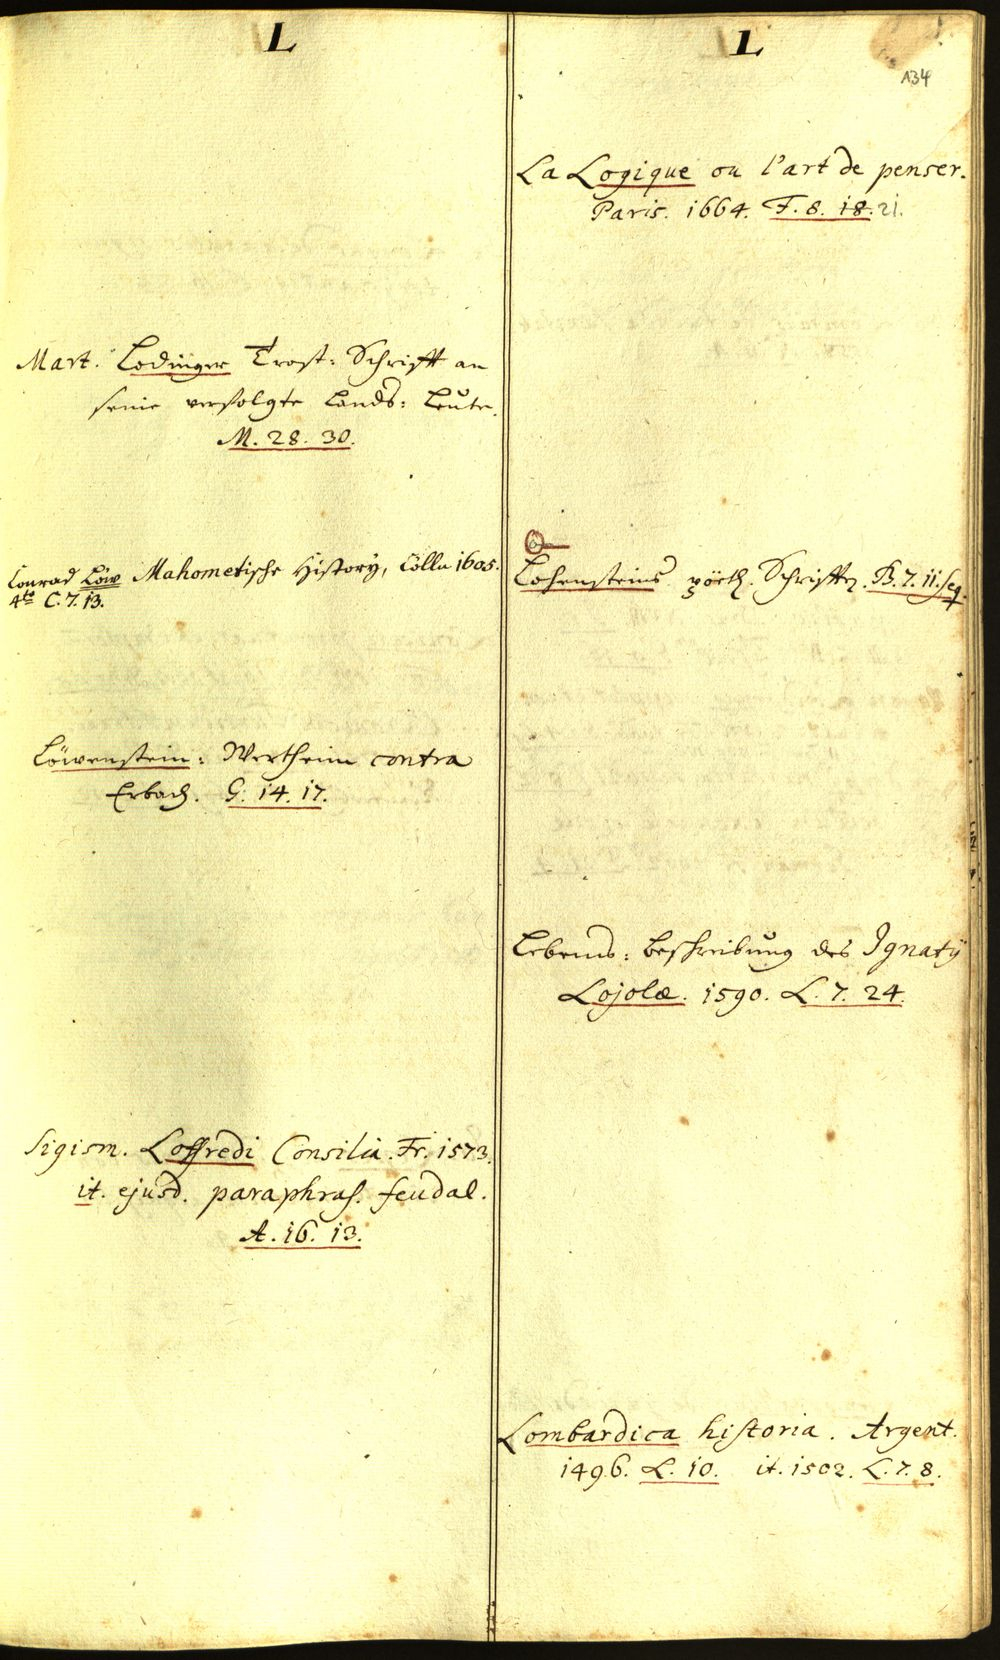 L
Mart. Lodinger Trost-Schrifft an
seine verfolgte Lands-Leute.
M. 28. 30.
Conrad Löw Mahometische History, Cölln 1605.
4to C. 7. 13.
Löwenstein-Wertheim contra
Erbach. G. 14. 17.
Sigism. Loffredi Consilia. Fr. 1573.
it. ejusd. paraphras. feudal.
A. 16. 13.
L
134
La Logique ou l'art de penser.
Paris. 1664. F. 8. 18. 21.
Lohensteins poëth. Schrifften. B. 7. 11. seq.
Lebens-Beschreibung des Ignatij
Lojolæ. 1590. L. 7. 24.
Lombardica historia. Argent.
1496. L. 10. it. 1502. L. 7. 8.